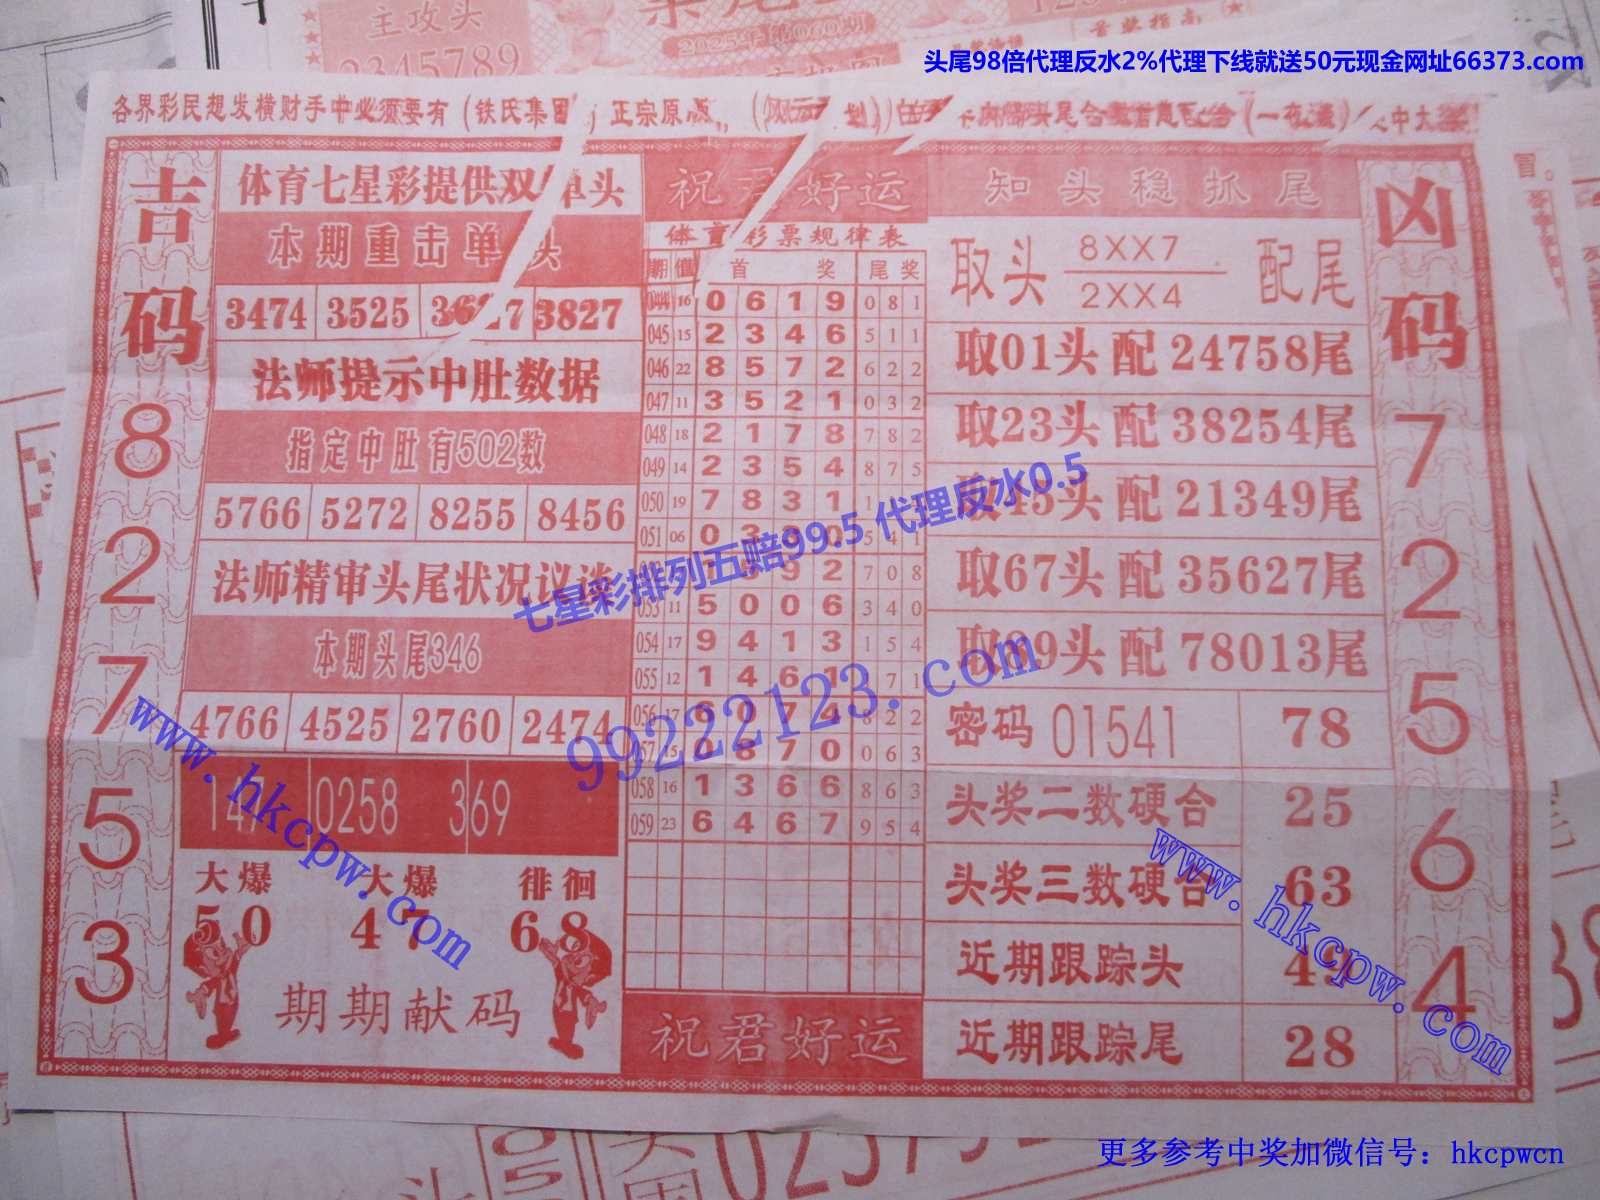 主攻头
2345789
2025年第060期
头尾98倍代理反水2%代理下线就送50元现金网址66373.com
各界彩民想发横财手中必须要有(铁氏集团)正宗原
吉码
8
2
7
5
3
体育七星彩提供双单头
本期重击单头
3474 3525 3827
法师提示中肚数据
指定中肚有502数
5766 5272 8255 8456
法师精审头尾状况议谈
本期头尾346
4766 4525 2760 2474
147 0258 369
大爆 大爆 徘徊
50 47 68
期期献码
祝君好运
体育彩票规律表
期 值 首奖 尾奖
044 16 0 6 1 9 0 8 1
045 15 2 3 4 6 5 1 1
046 22 8 5 7 2 6 2 2
047 11 3 5 2 1 0 3 2
048 18 2 1 7 8 7 8 2
049 14 2 3 5 4 8 7 5
050 19 7 8 3 1 1
051 06 0 3 0 5 4 1
9 2 7 0 8
053 11 5 0 0 6 3 4 0
054 17 9 4 1 3 1 5 4
055 12 1 4 6 1 7 1
056 17 6 0 7 4 8 2 2
057 15 0 8 7 0 0 6 3
058 16 1 3 6 6 8 6 3
059 23 6 4 6 7 9 5 4
祝君好运
知头稳抓尾
取头 8XX7 配尾
2XX4
取01头 配 24758尾
取23头 配 38254尾
取45头 配 21349尾
取67头 配 35627尾
取89头 配 78013尾
密码 01541 78
头奖二数硬合 25
头奖三数硬合 63
近期跟踪头 49
近期跟踪尾 28
凶码
7
2
5
6
4
七星彩排列五赔99.5 代理反水0.5
99222123.com
www.hkcpw.com
www.hkcpw.com
更多参考中奖加微信号：hkcpwcn